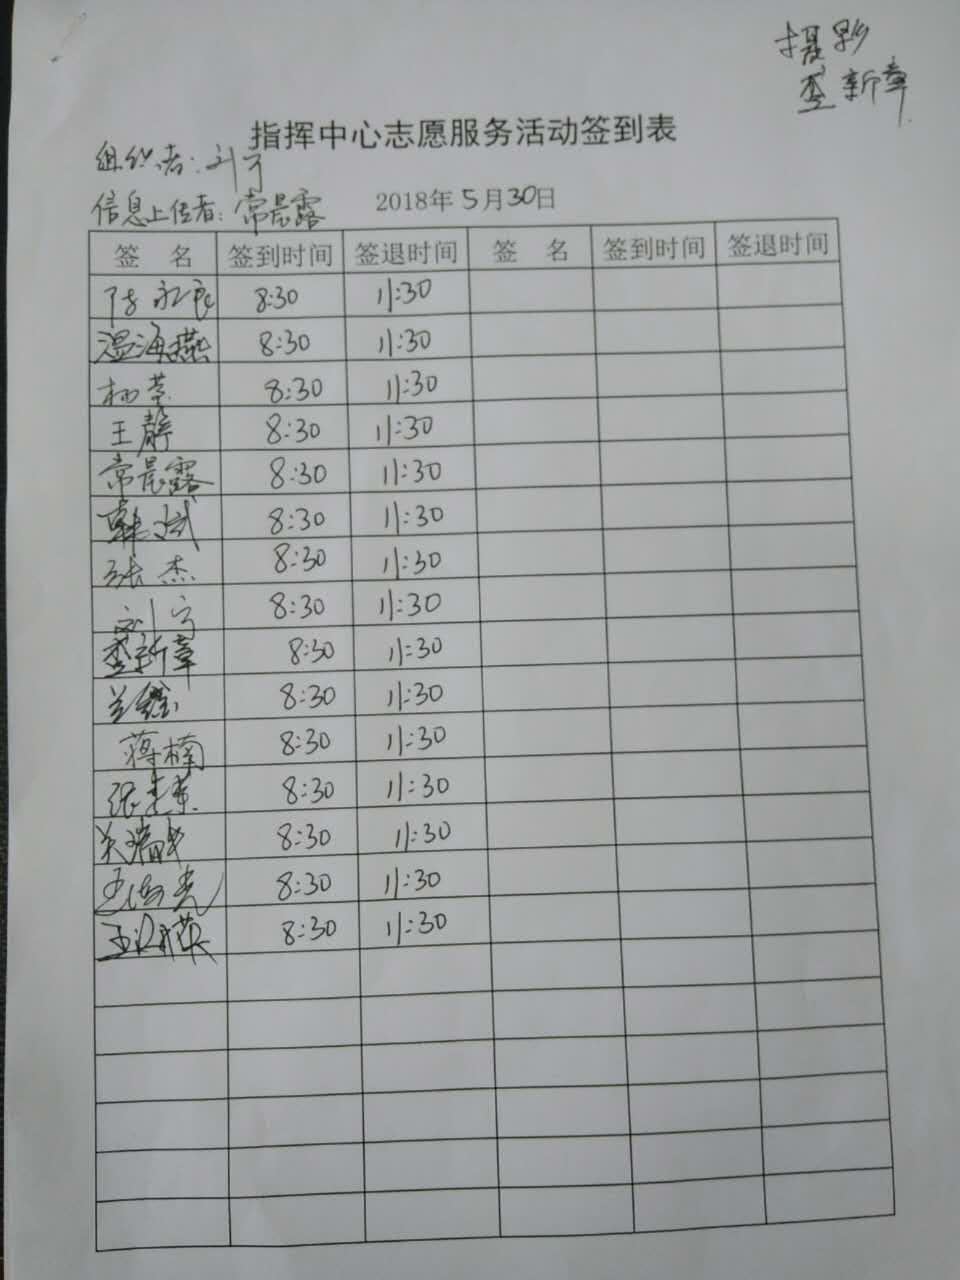 摄影
查新章
指挥中心志愿服务活动签到表
组织者:刘宁
信息上传者:常晨露 2018年5月30日
签 名 签到时间 签退时间 签 名 签到时间 签退时间
8:30 11:30
温海燕 8:30 11:30
杨荣 8:30 11:30
王静 8:30 11:30
常晨露 8:30 11:30
韩斌 8:30 11:30
张杰 8:30 11:30
刘宁 8:30 11:30
查新章 8:30 11:30
兰鑫 8:30 11:30
蒋楠 8:30 11:30
张 8:30 11:30
8:30 11:30
8:30 11:30
8:30 11:30